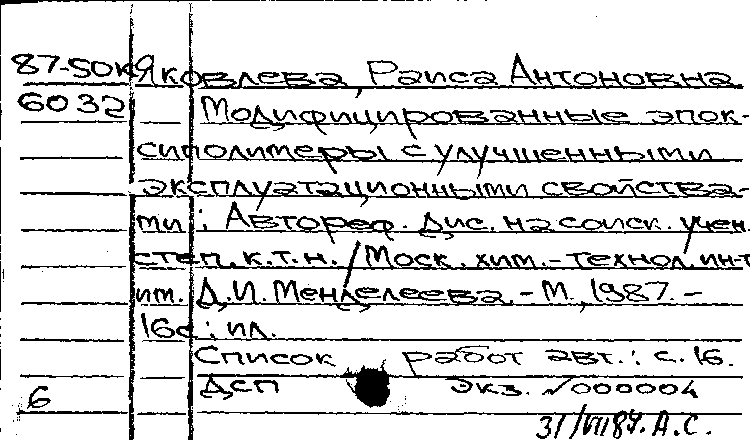 87-50к Яковлева, Раиса Антоновна
6032 Модифицированные эпок-
сиполимеры с улучшенными
эксплуатационными свойства-
ми : Автореф. дис. на соиск. учен.
степ. к.т.н. / Моск. хим.-технол. ин-т
им. Д.И. Менделеева. - М., 1987. -
16с : ил.
Список работ авт.: с. 16.
ДСП экз. №000004
6
31/VII 87. А.С.